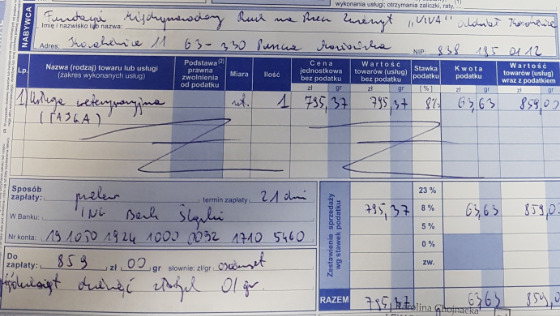 wykonania usługi; otrzymania zaliczki, raty,
NABYWCA
Fundacja Międzynarodowy Ruch na Rzecz Zwierząt „VIVA”
Imię i nazwisko lub nazwa
Adres: 11 63-330 NIP:
Lp. Nazwa (rodzaj) towaru lub usługi (zakres wykonanych usług) Podstawa prawna zwolnienia od podatku Miara Ilość Cena jednostkowa bez podatku Wartość towarów (usług) bez podatku Stawka podatku Kwota podatku Wartość towarów (usług) wraz z podatkiem
zł gr zł gr (%) zł gr zł gr
1 Usługa weterynaryjna 1 795,37 795,37 8% 63,63 859,00
(TAJGA)
Sposób zapłaty: przelew termin zapłaty 21 dni
W Banku: ING Bank Śląski
Nr konta: 19 1050 1924 1000 0092 1710 5460
Zestawienie sprzedaży wg stawek podatku
23 %
795,37 8 % 63,63 859,0
5 %
0 %
zw.
Do zapłaty: 859 zł 00 gr słownie: zł/gr osiemset
pięćdziesiąt dziewięć złotych 0/gr
RAZEM 795,37 63,63 859,0